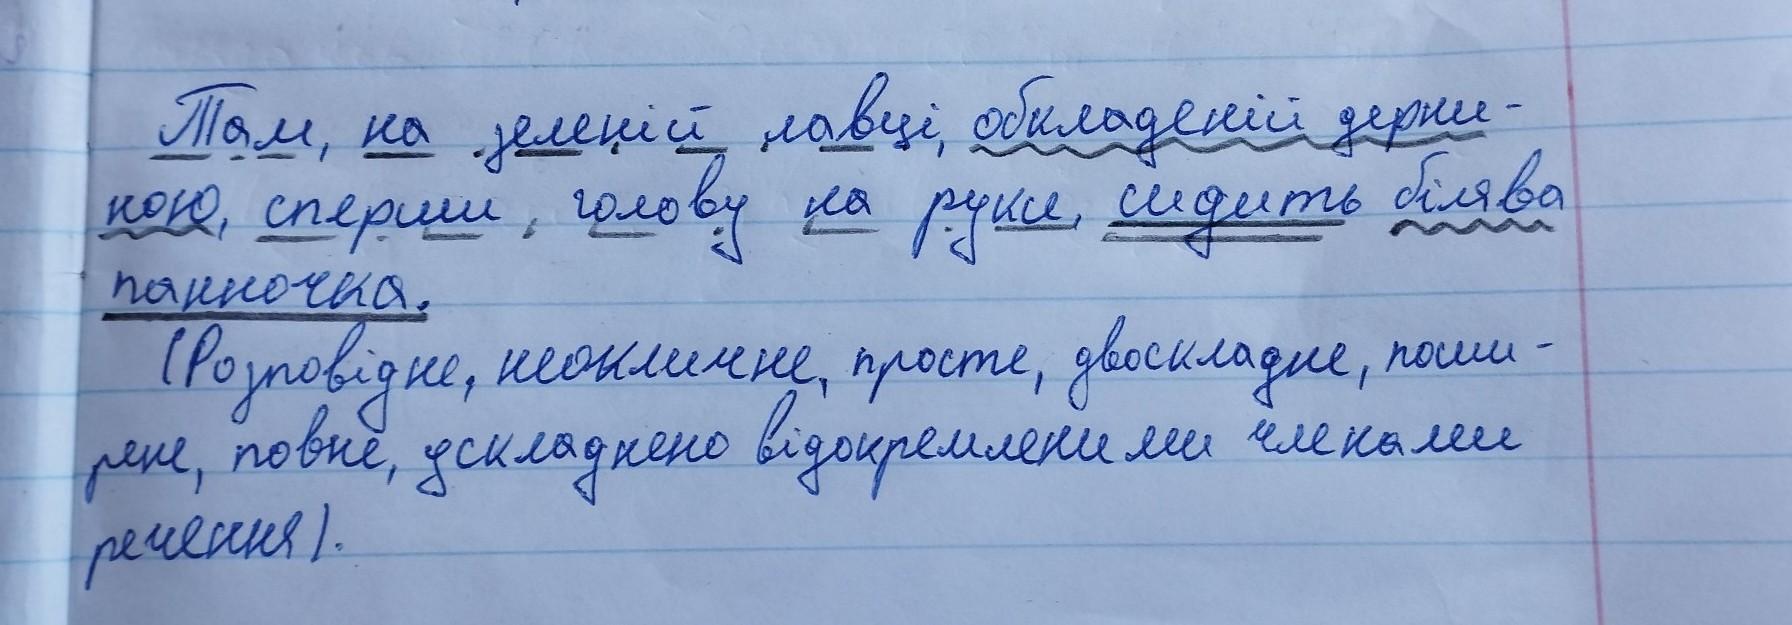 Там, на зеленій лавці, обкладеній дерни-
ною, сперши голову на руки, сидить білява
панночка.
(Розповідне, неокличне, просте, двоскладне, поши-
рене, повне, ускладнено відокремленими членами
речення).